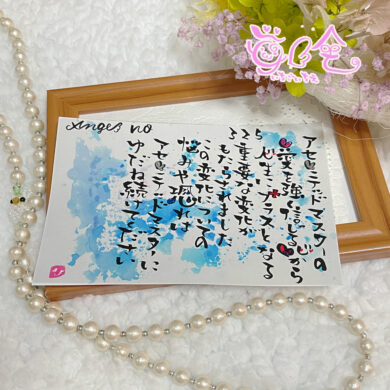 Angel no
アセンデッドマスターの
愛を強く信じる心から
人生にプラスとなる
重要な変化が
もたらされました
この変化についての
悩みや恐れは
アセンデッドマスターに
ゆだね続けてください